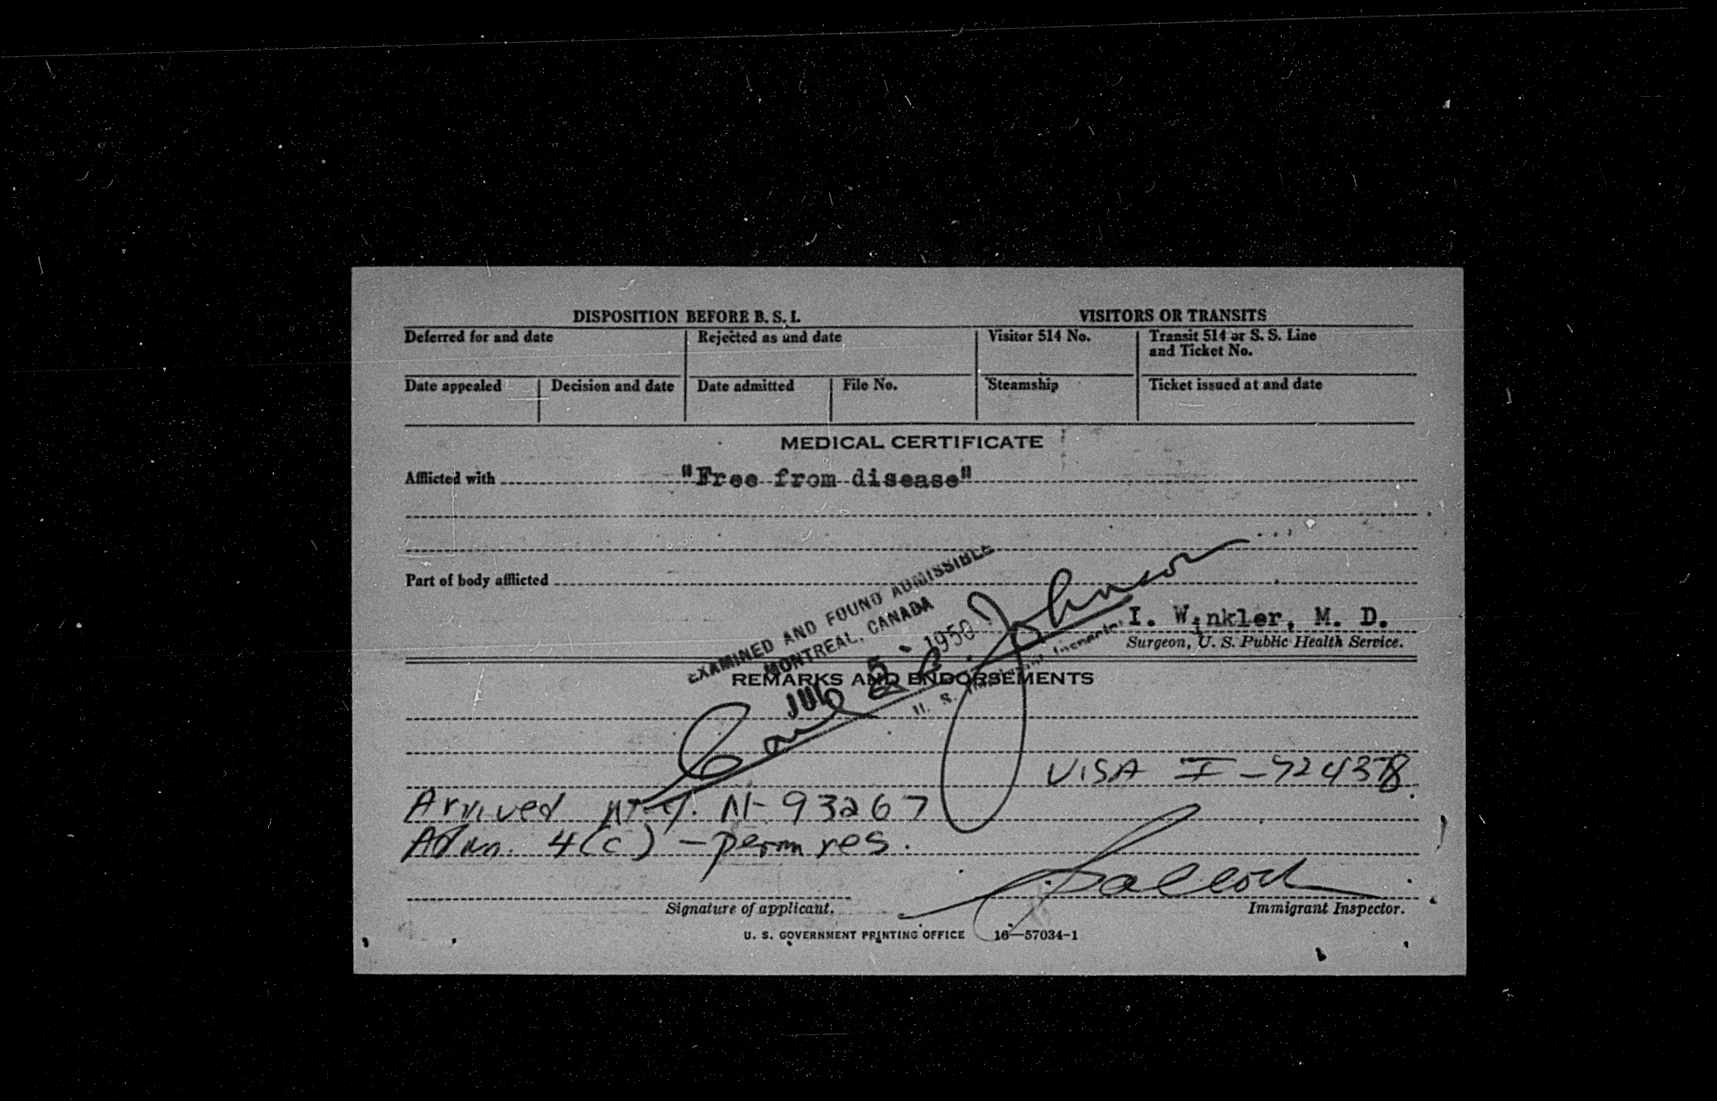 DISPOSITION BEFORE B. S. I.
VISITORS OR TRANSITS
Deferred for and date
Rejected as and date
Visitor 514 No.
Transit 514 or S. S. Line
and Ticket No.
Date appealed
Decision and date
Date admitted
File No.
Steamship
Ticket issued at and date
MEDICAL CERTIFICATE
Afflicted with "Free from disease"
Part of body afflicted
EXAMINED AND FOUND ADMISSIBLE
MONTREAL, CANADA
JUL 5 - 1950
Carl R. Johnson
U. S. Immigrant Inspector
I. Winkler, M. D.
Surgeon, U. S. Public Health Service.
REMARKS AND ENDORSEMENTS
VISA I-724378
Arrived N.Y. N-93267
Adm. 4(c) - perm res.
Signature of applicant.
Immigrant Inspector.
U. S. GOVERNMENT PRINTING OFFICE 16—57034-1